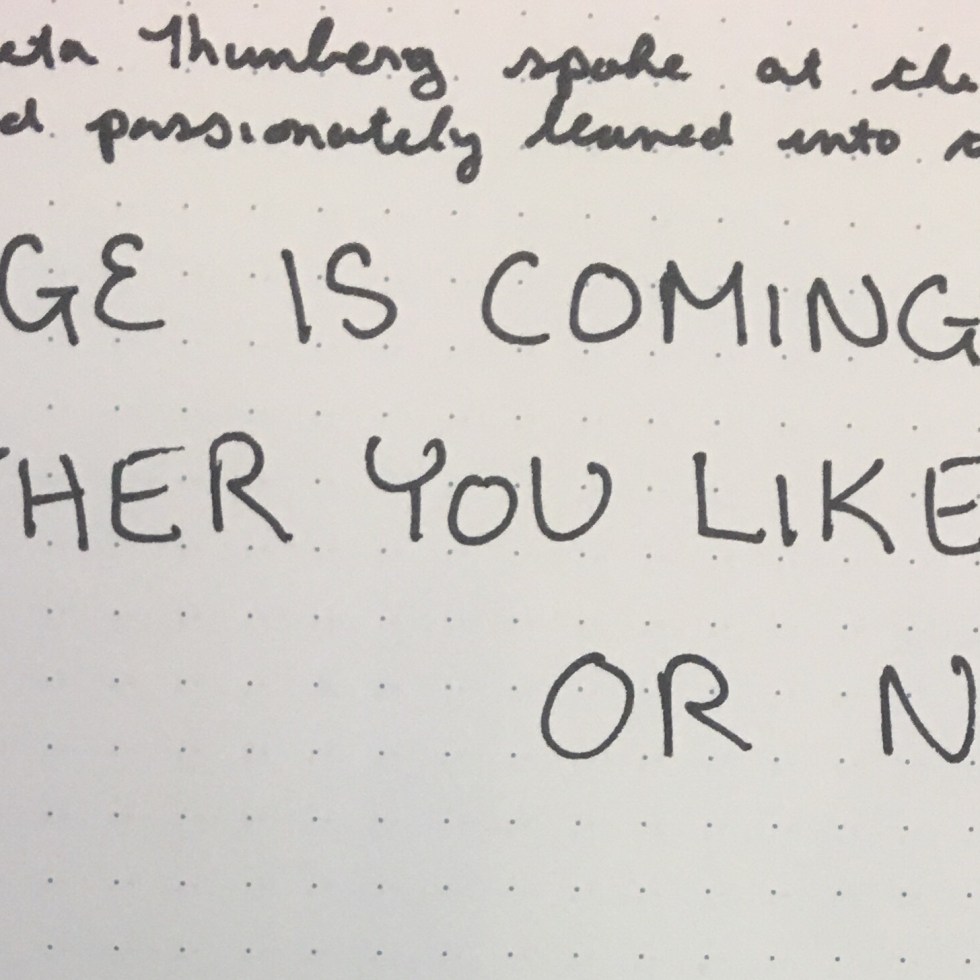 eta Thunberg spoke at the
d passionately leaned into
GE IS COMING
THER YOU LIKE
OR N